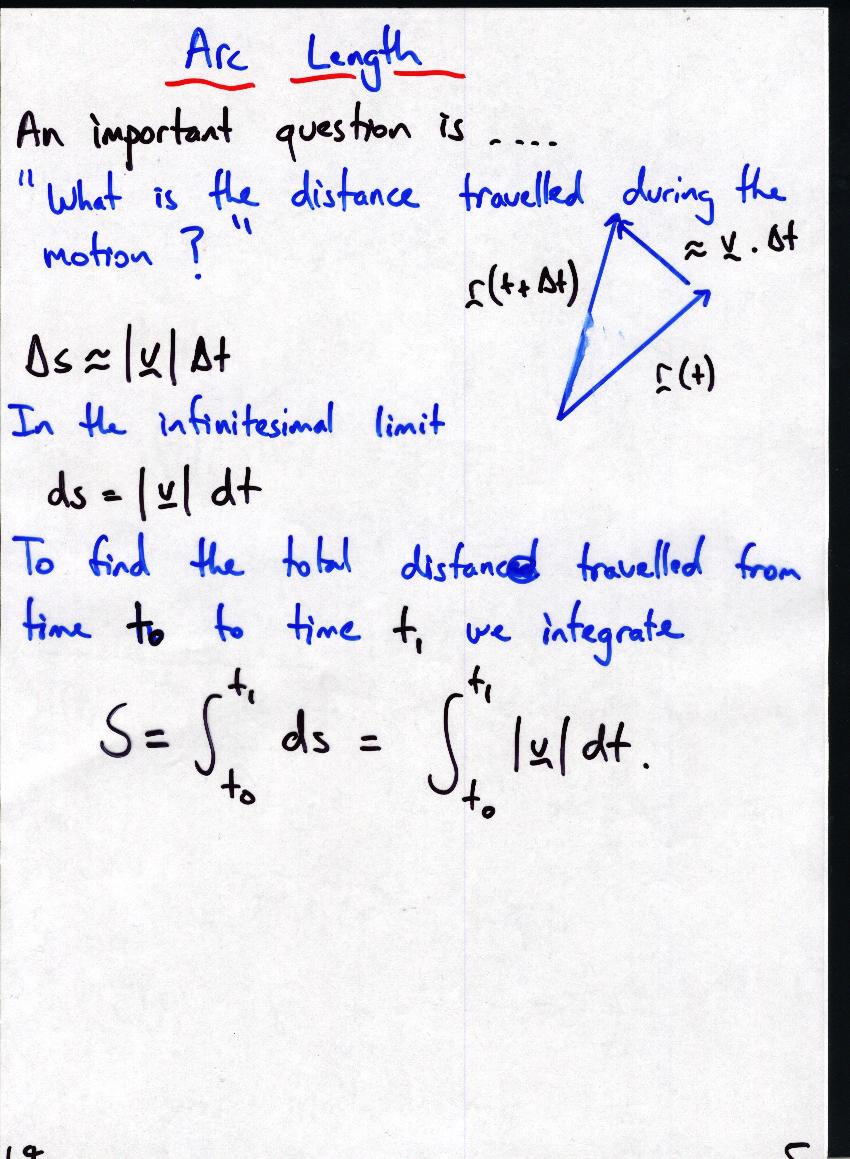 Arc Length
An important question is ....
"What is the distance travelled during the
motion ?"
≈ v̰ . Δt
r̰(t+Δt)
r̰(t)
Δs ≈ |v̰| Δt
In the infinitesimal limit
ds = |v̰| dt
To find the total distance travelled from
time t₀ to time t₁ we integrate
S = ∫_{t₀}^{t₁} ds = ∫_{t₀}^{t₁} |v̰| dt.